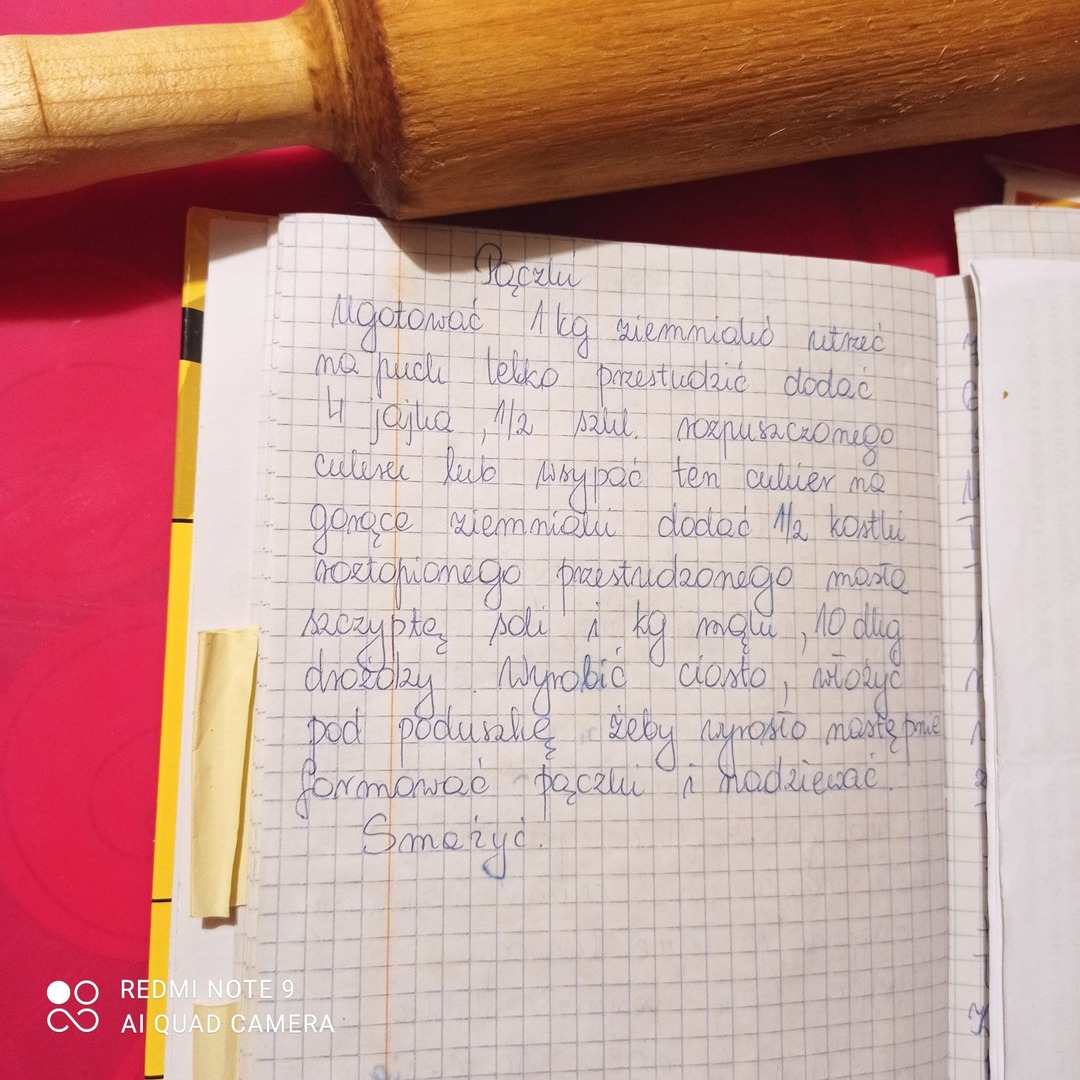 Pączki
Ugotować 1 kg ziemniaków utrzeć
na puch lekko przestudzić dodać
4 jajka, 1/2 szkl. rozpuszczonego
cukru lub wsypać ten cukier na
gorące ziemniaki dodać 1/2 kostki
roztopionego przestudzonego masła
szczyptę soli i kg mąki, 10 dkg
drożdży. Wyrobić ciasto, włożyć
pod poduszkę żeby wyrosło następnie
formować pączki i nadziewać.
Smażyć.
REDMI NOTE 9
AI QUAD CAMERA